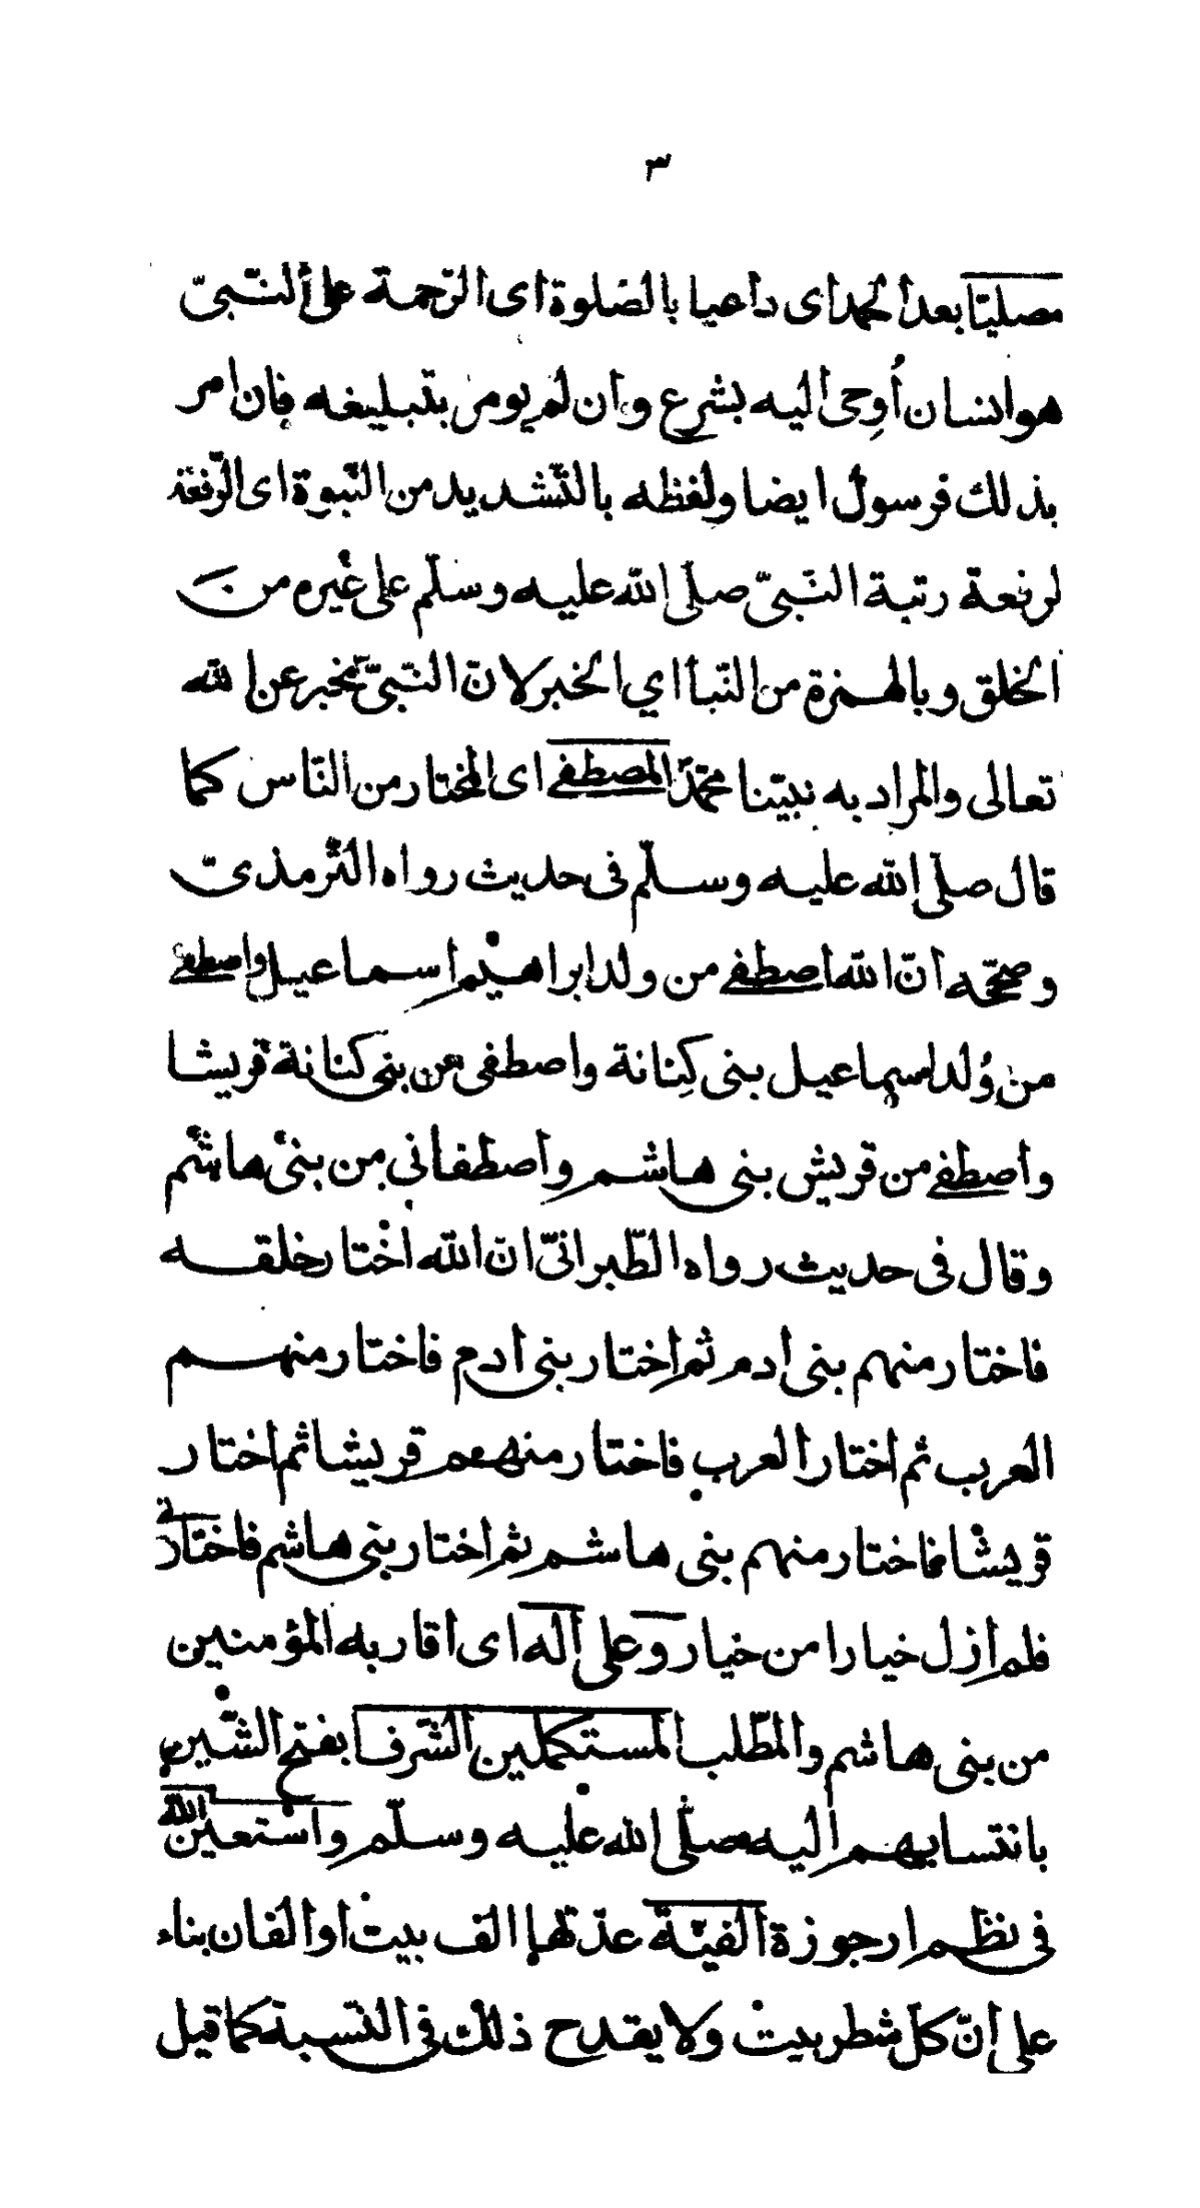 ٣
مصليّا بعد الحمد اى داعيا بالصّلوة اى الرّحمة على النّبىّ
هو انسان أُوحِى اليه بشرع وان لم يومر بتبليغه فان امر
بذلك فرسول ايضا ولفظه بالتّشديد من النّبوة اى الرّفعة
لرفعة رتبة النّبىّ صلّى الله عليه وسلّم على غيره من
الخلق وبالهمزة من النّبأ اي الخبر لانّ النّبىّ مخبر عن الله
تعالى والمراد به نبيّنا محمّد المصطفى اى المختار من النّاس كما
قال صلّى الله عليه وسلّم فى حديث رواه التّرمذىّ
وصحّحه انّ الله اصطفى من ولد ابراهيم اسماعيل واصطفى
من وُلد اسماعيل بنى كِنانة واصطفى من بنى كنانة قريشا
واصطفى من قريش بنى هاشم واصطفاني من بنى هاشم
وقال فى حديث رواه الطّبرانىّ ان الله اختار خلقه
فاختار منهم بنى ادم ثم اختار بنى ادم فاختار منهم
العرب ثم اختار العرب فاختار منهم قريشا ثم اختار
قريشا فاختار منهم بنى هاشم ثم اختار بنى هاشم فاختارنى
فلم ازل خيارا من خيار وعلى آله اى اقاربه المؤمنين
من بنى هاشم والمطّلب المستكملين الشّرفا بفتح الشّين
بانتسابهم اليه صلّى الله عليه وسلّم واستعين الله
فى نظم ارجوزة الفيّة عدّتها الف بيت او الفان بناء
على انّ كلّ شطر بيت ولا يقدح ذلك فى النّسبة كما قيل